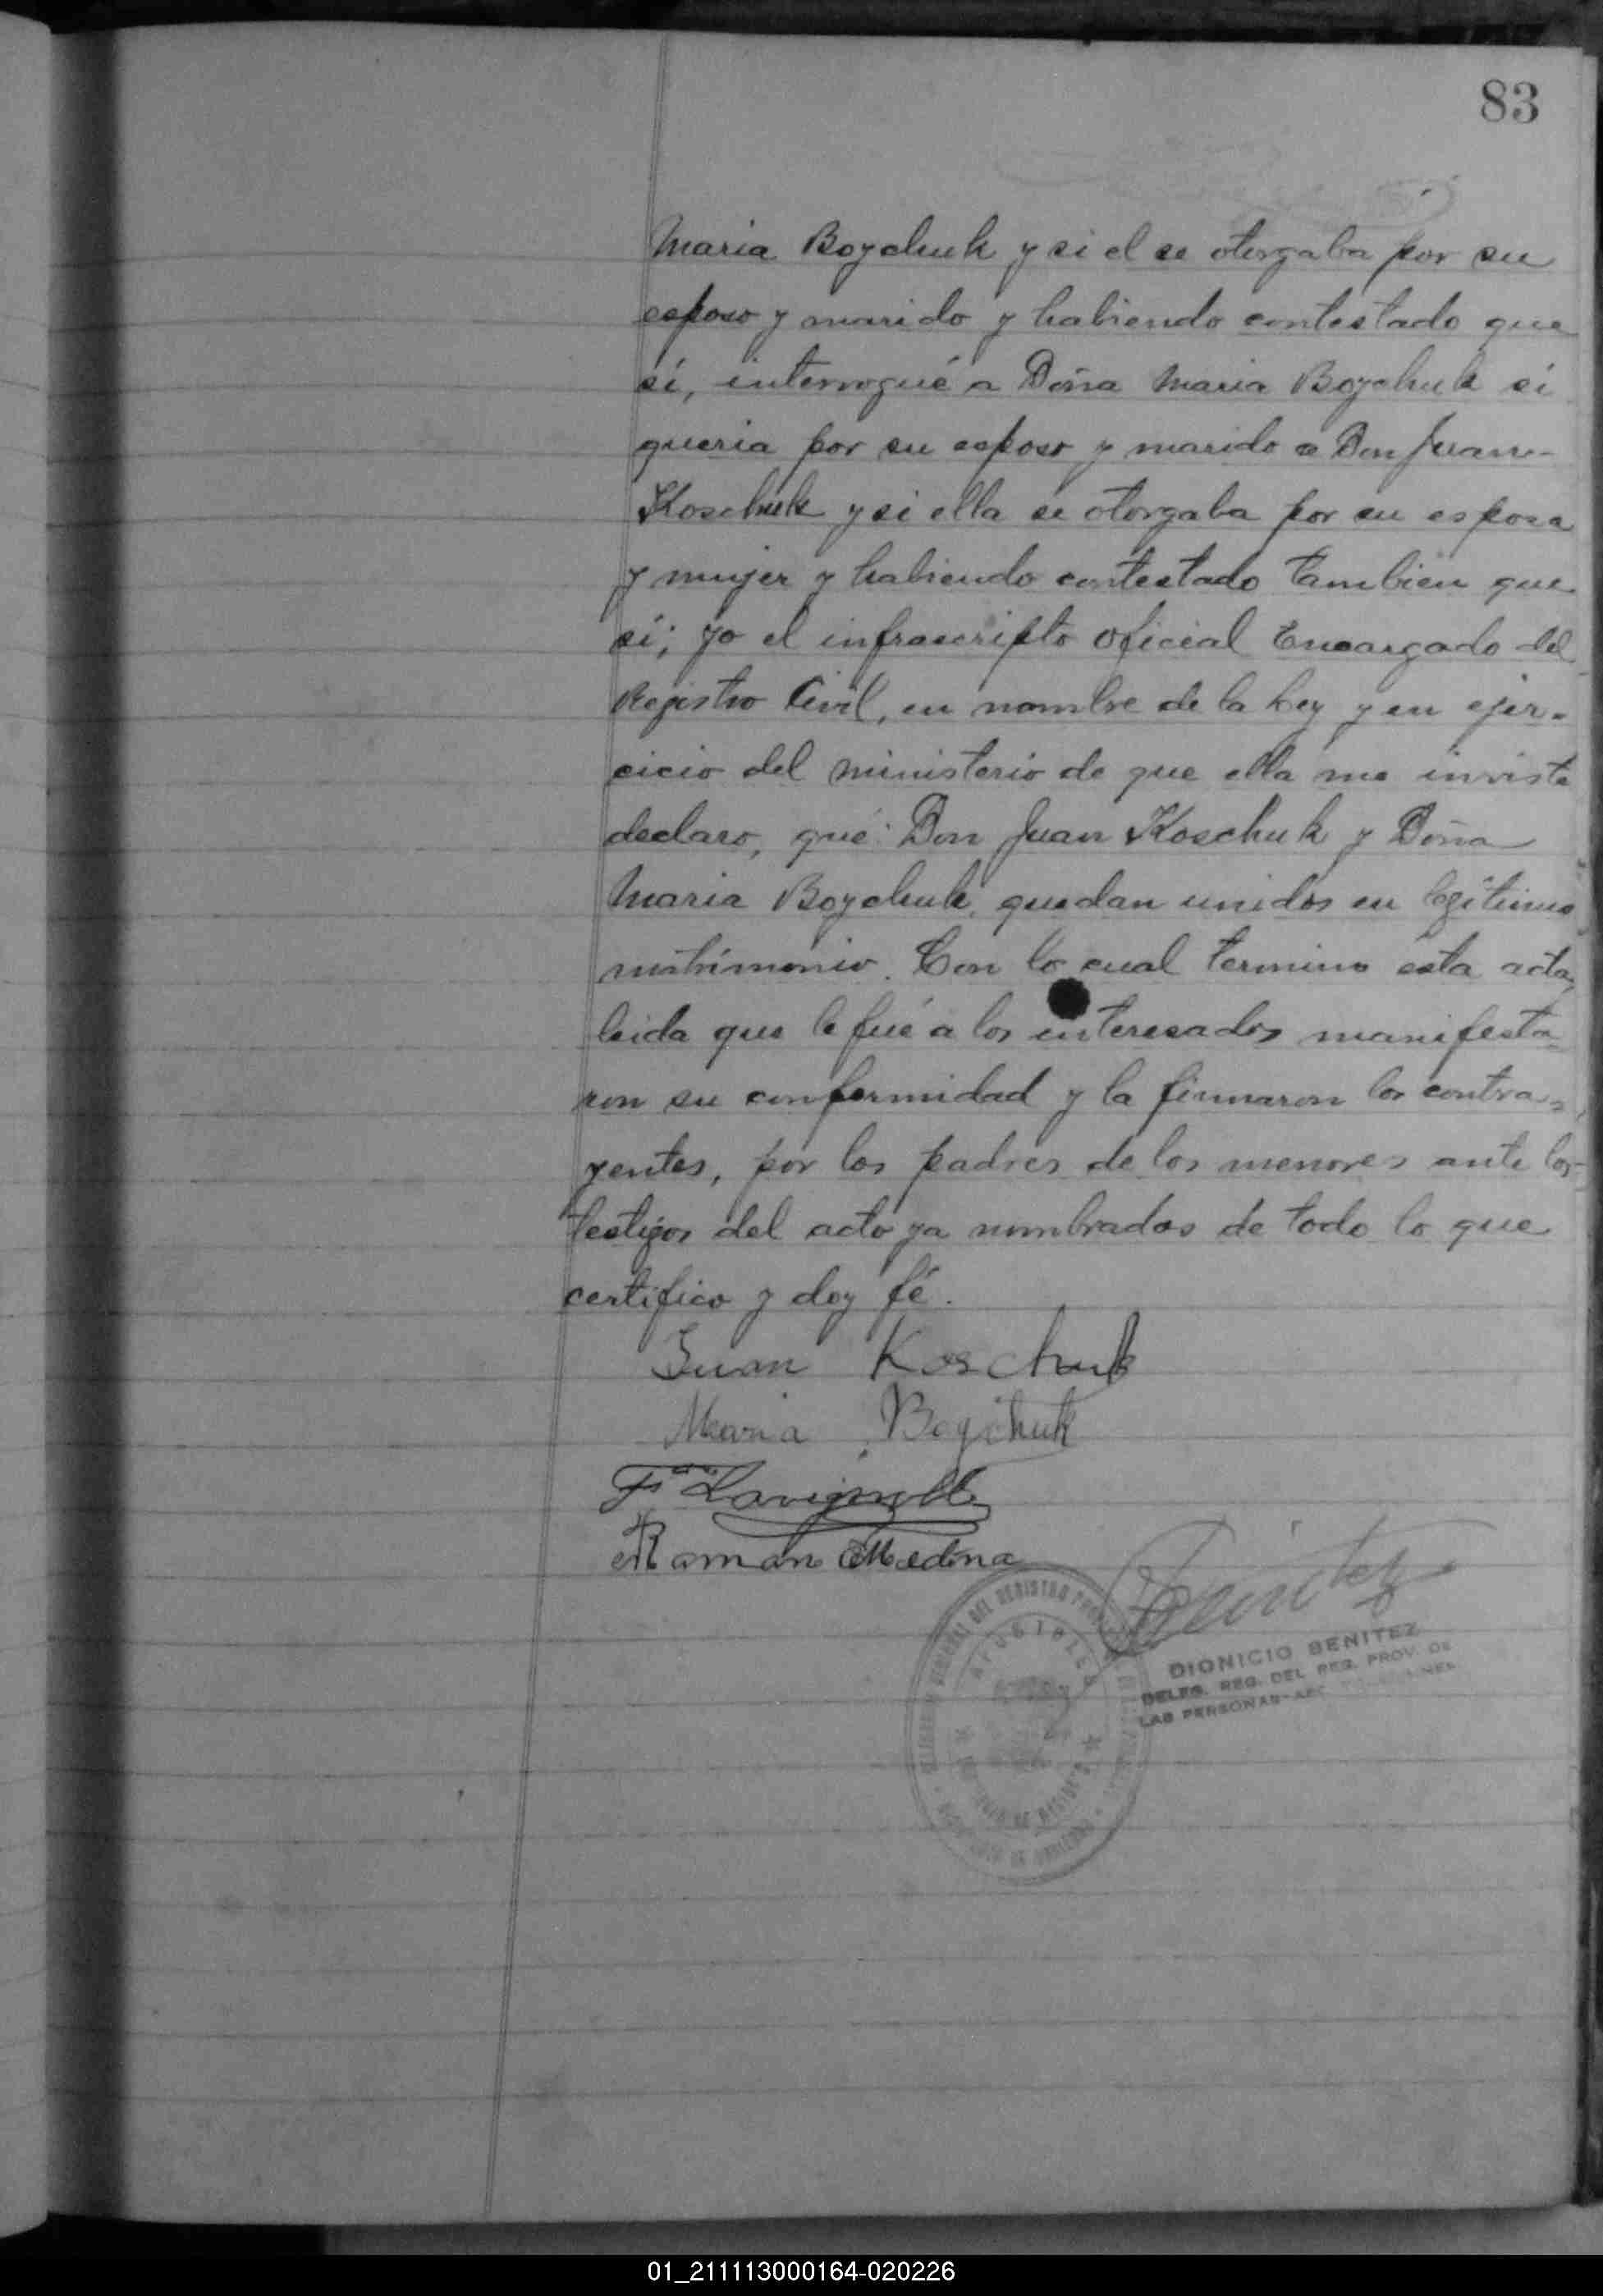 83
Maria Boychuk y si el se otorgaba por su
esposo y marido y habiendo contestado que
sí, interrogué a Doña Maria Boychuk si
queria por su esposo y marido a Don Juan-
Koschuk y si ella se otorgaba por su esposa
y mujer y habiendo contestado tambien que
sí; yo el infrascripto Oficial Encargado del
Registro Civil, en nombre de la Ley y en ejer-
cicio del ministerio de que ella me inviste
declaro, que: Don Juan Koschuk y Doña
Maria Boychuk, quedan unidos en legítimo
matrimonio. Con lo cual termino esta acta,
leida que le fué a los interesados manifesta-
ron su conformidad y la firmaron los contra-
yentes, por los padres de los menores ante los-
testigos del acto ya nombrados de todo lo que
certifico y doy fé.
Juan Koschuk
Maria Boychuk
Ramon Medina
DIONICIO BENITEZ
DELEG. REG. DEL REG. PROV. DE
LAS PERSONAS
APOSTOLES
01_211113000164-020226